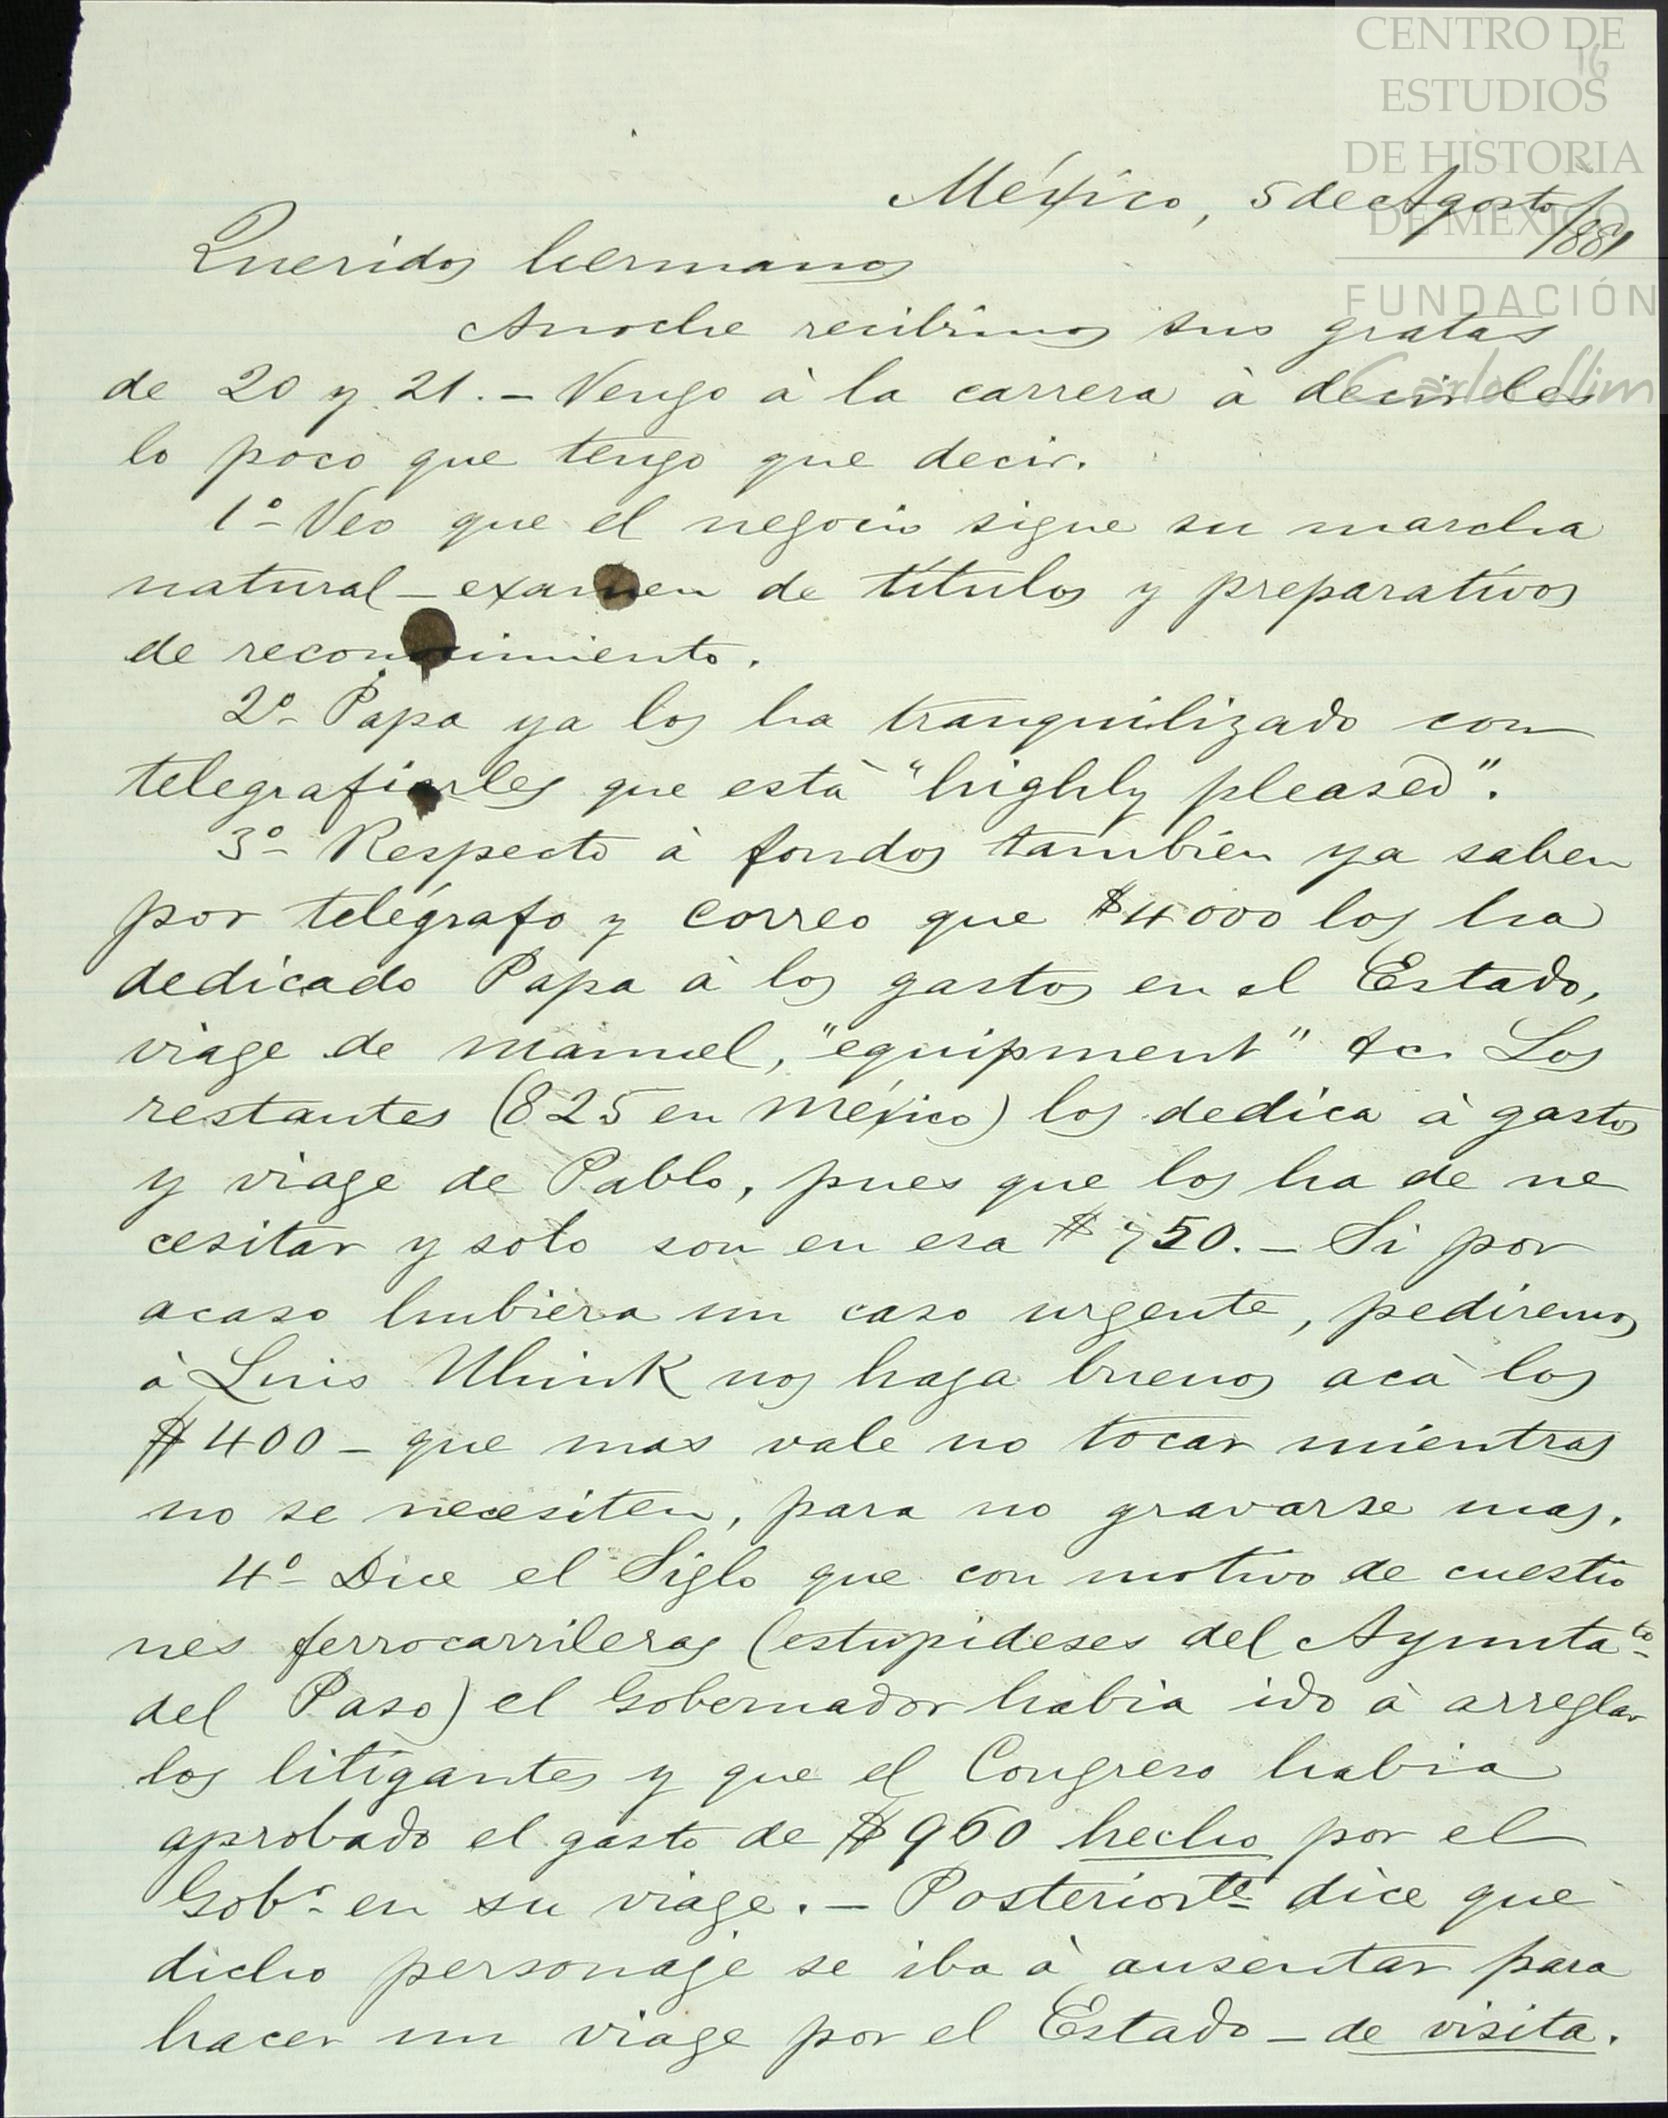 CENTRO DE
ESTUDIOS
DE HISTORIA
DE MEXICO
FUNDACIÓN
Carlos Slim
16
México, 5 de Agosto/881
Queridos hermanos
Anoche recibimos sus gratas
de 20 y 21. – Vengo à la carrera à decirles
lo poco que tengo que decir.
1º Veo que el negocio sigue su marcha
natural – examen de titulos y preparativos
de reconocimiento.
2º Papa ya los ha tranquilizado con
telegrafiarles que està "highly pleased".
3º Respecto à fondos tambièn ya saben
por telégrafo y correo que $4000 los ha
dedicado Papa à los gastos en el Estado,
viage de Manuel, "equipment" &c. Los
restantes (825 en México) los dedica à gastos
y viage de Pablo, pues que los ha de ne
cesitar y solo son en esa $750. – Si por
acaso hubiera un caso urgente, pediremos
à Luis nos haga buenos acà los
$400 – que mas vale no tocar mientras
no se necesiten, para no gravarse mas.
4º Dice el Siglo que con motivo de cuestio
nes ferrocarrileras (estupideses del Ayuntato
del Paso) el Gobernador habia ido à arreglar
los litigantes y que el Congreso habia
aprobado el gasto de $960 hecho por el
Gobr en su viage. – Posteriorte dice que
dicho personaje se iba à ausentar para
hacer un viage por el Estado – de visita.